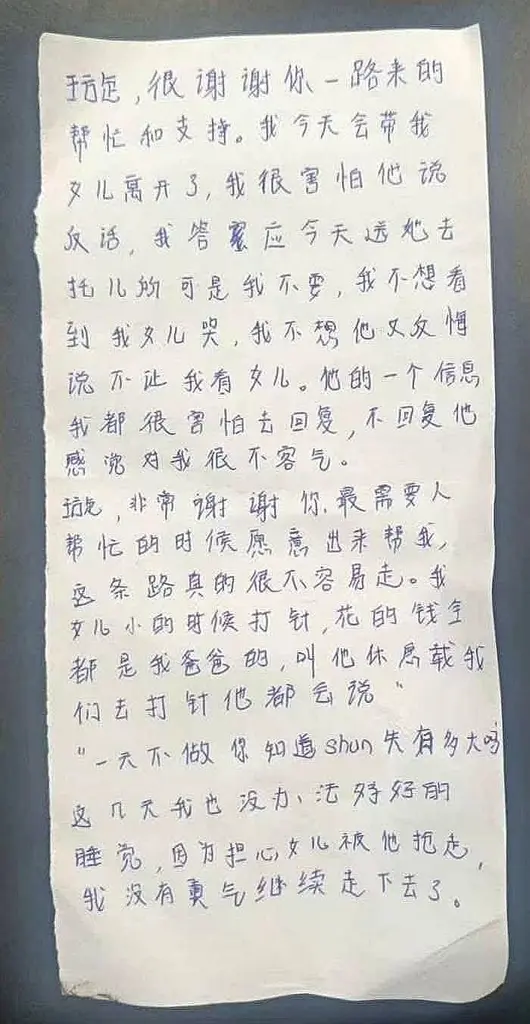 很谢谢你一路来的
帮忙和支持。我今天会带我
女儿离开了,我很害怕他说
反话,我答应今天送她去
托儿所可是我不要,我不想看
到我女儿哭,我不想他又反悔
说不让我看女儿。他的一个信息
我都很害怕去回复,不回复他
感觉对我很不客气。
非常谢谢你,最需要人
帮忙的时候愿意出来帮我,
这条路真的很不容易走。我
女儿小的时候打针,花的钱全
都是我爸爸的,叫他休息载我
们去打针他都会说"
"一天不做你知道shun失有多大吗
这几天我也没办法好好的
睡觉,因为担心女儿被他抢走,
我没有勇气继续走下去了。